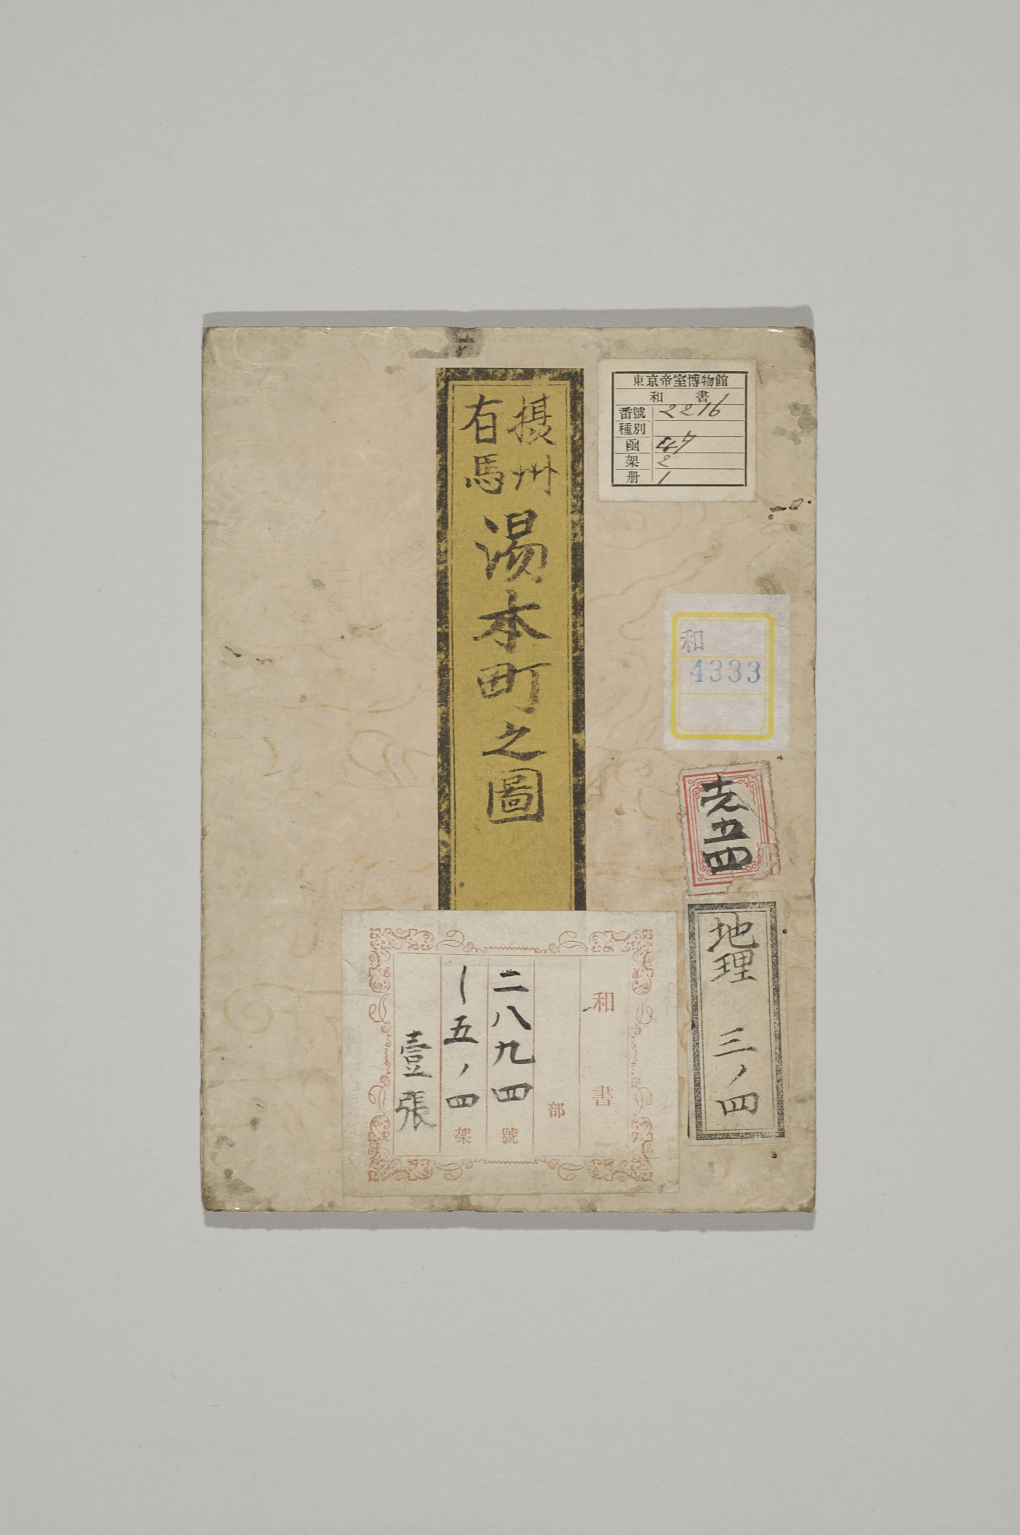 摂州
有馬
湯本町之圖
東京帝室博物館
和書
番號 2216
種別
函
架 2
册 1
和
4333
五四
地理 三ノ四
和書
部
二八九四號
一五ノ四架
壹張